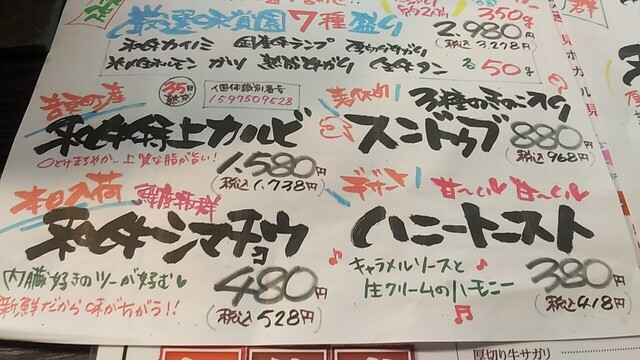 350g
厳選味質園7種盛り 2,980円
(税込3,278円)
和牛カイノミ 国産牛ランプ 厚切サガリ
ホルモン ガツ 熟成サガリ 生牛タン 各50g
35日熟成
個体識別番号
1597509528
和牛特上カルビ
とけまろやか…上質な脂が旨い!
1,580円
(税込1,738円)
3種のきのこ入り
スンドゥブ 880円
(税込968円)
本日入荷 鮮度抜群
和牛シマチョウ
内臓好きのツーが好む♥
新鮮だから味がちがう!!
480円
(税込528円)
デザート 甘〜い 甘〜い
ハニートースト
♪キャラメルソースと♪
生クリームのハーモニー♫
380円
(税込418円)
厚切り牛サガリ